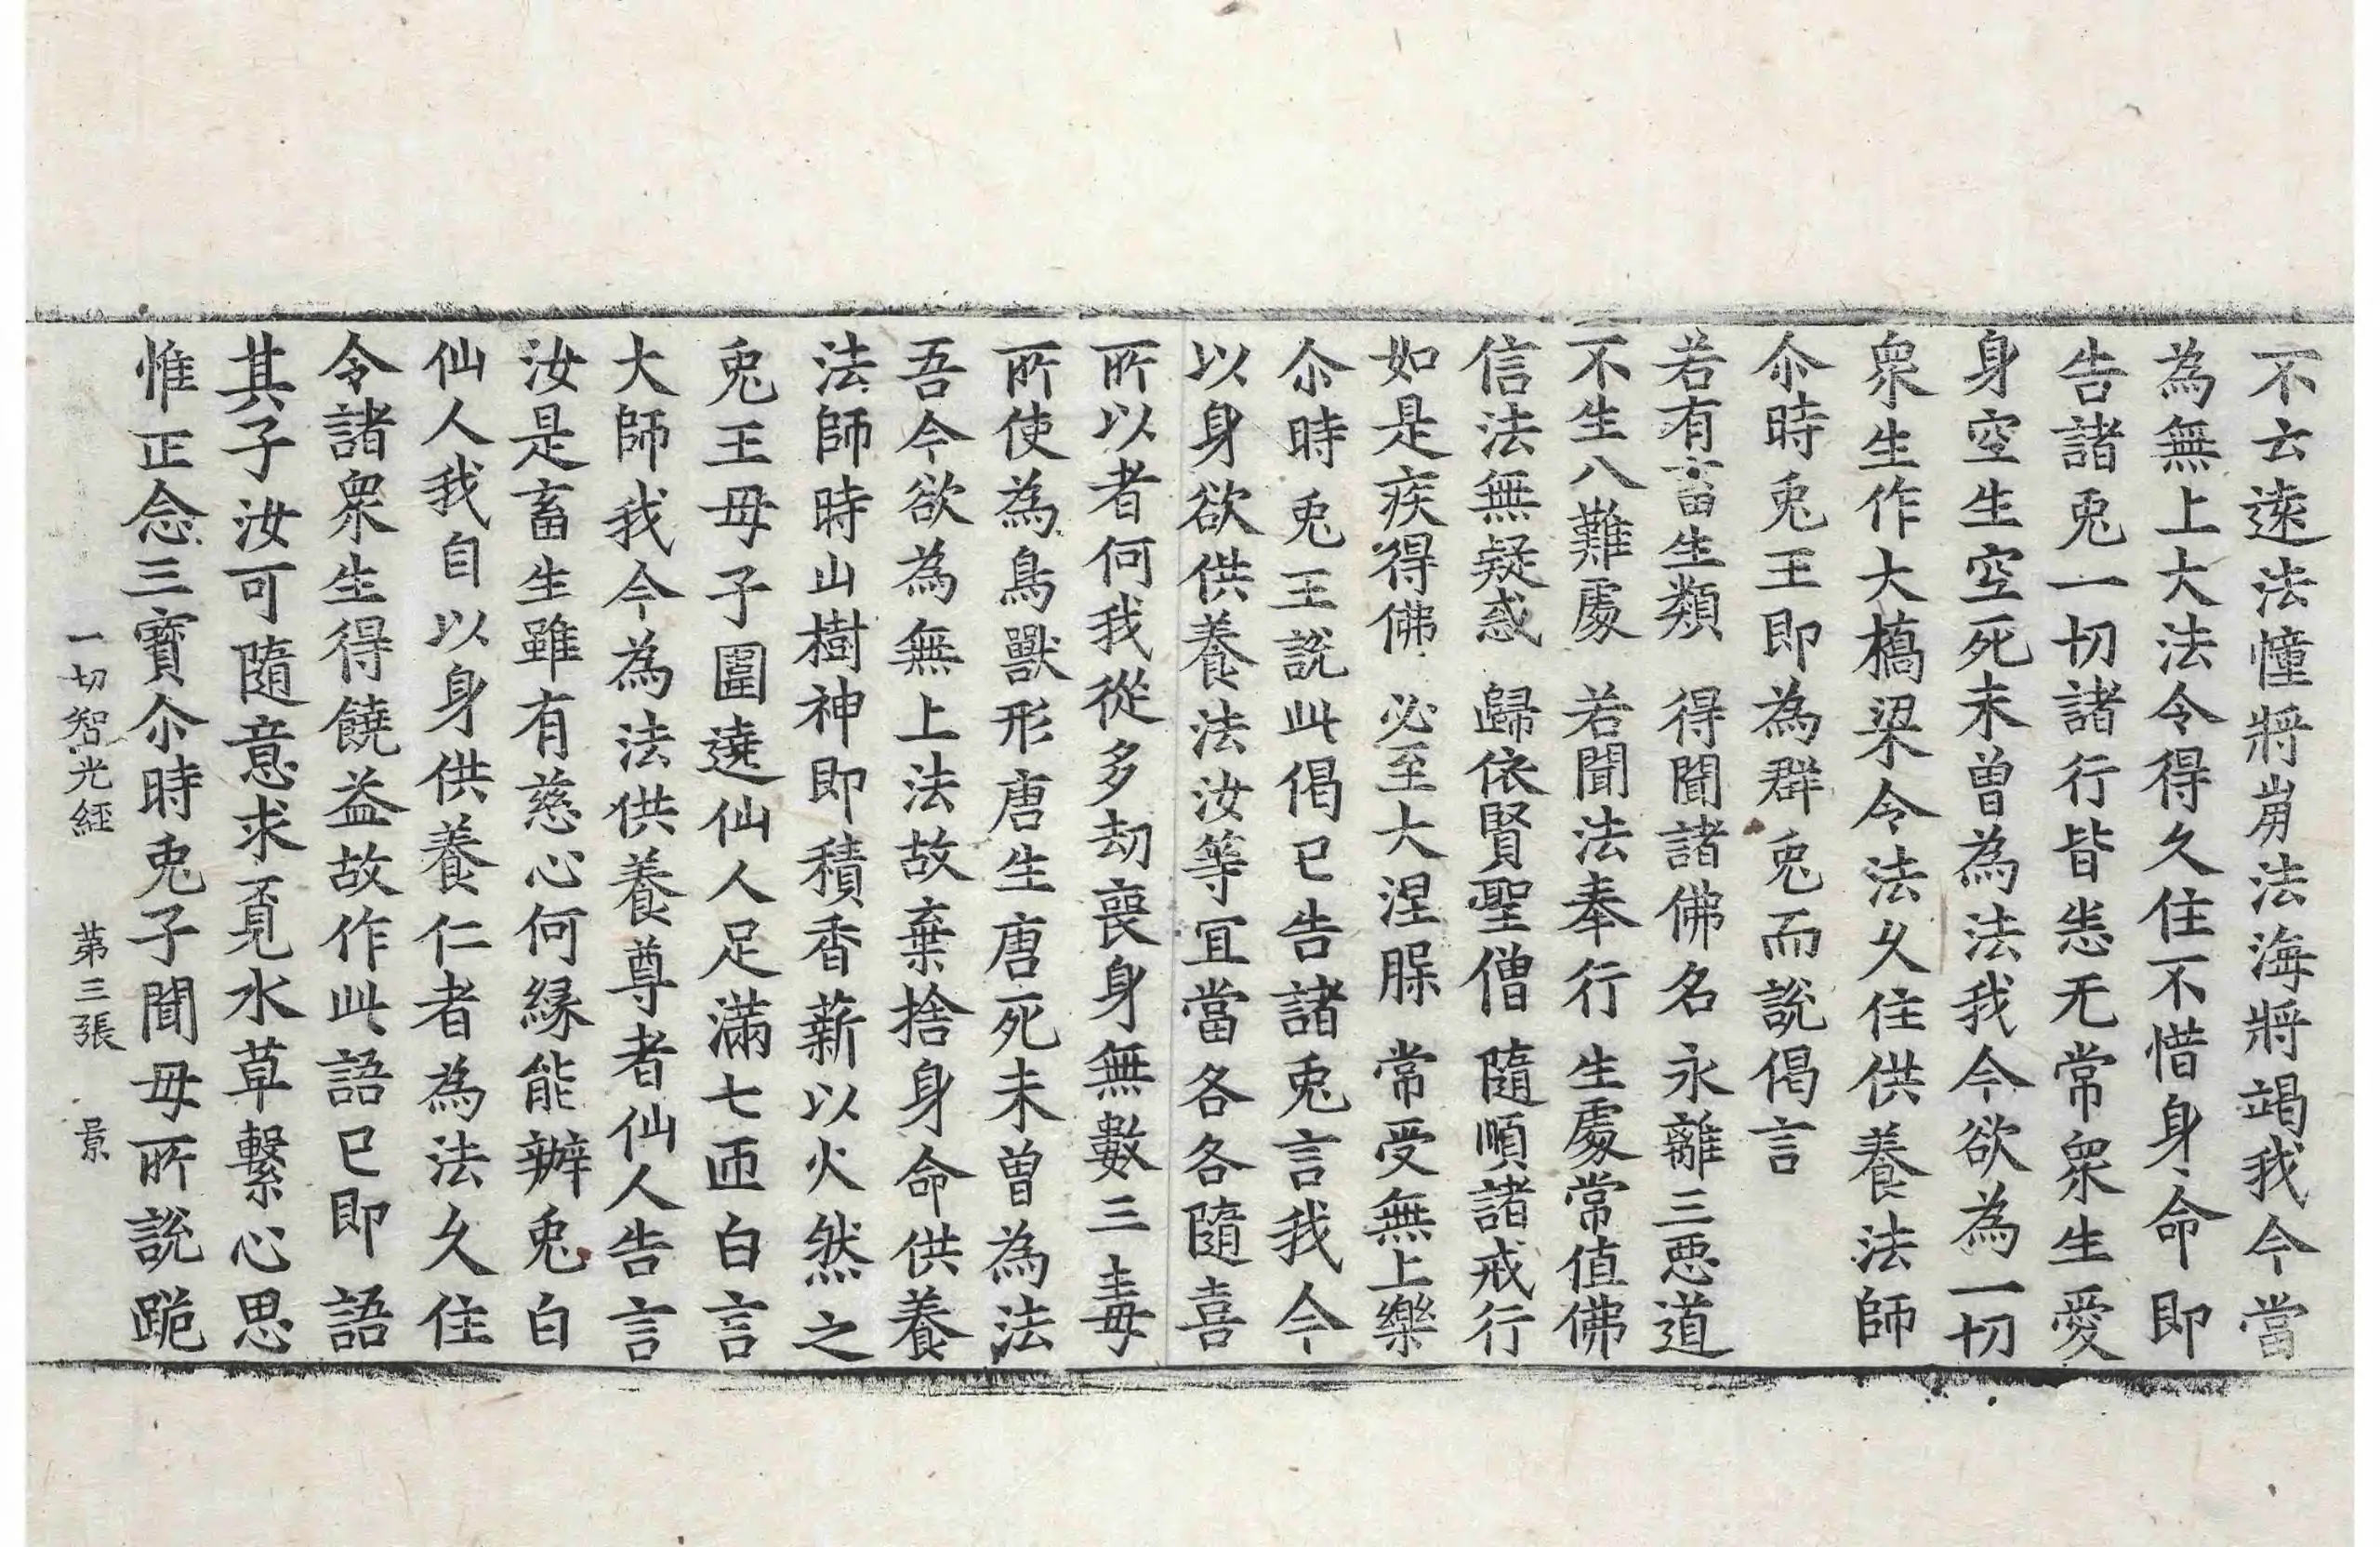 不云遠法憧將崩法海將竭我今當
為無上大法令得久住不惜身命即
告諸兎一切諸行皆悉无常衆生愛
身空生空死未曽為法我今欲為一切
衆生作大橋梁令法久住供養法師
尒時兎王即為群兎而說偈言
若有畜生類　得聞諸佛名　永離三惡道
不生八難處　若聞法奉行　生處常值佛
信法無疑惑　歸依賢聖僧　隨順諸戒行
如是疾得佛　必至大涅槃　常受無上樂
尒時兎王說此偈已告諸兎言我今
以身欲供養法汝等宜當各各隨喜
所以者何我從多劫喪身無數三毒
所使為鳥獸形唐生唐死未曽為法
吾今欲為無上法故棄捨身命供養
法師時山樹神即積香薪以火然之
兎王母子圍遶仙人足滿七匝白言
大師我今為法供養尊者仙人告言
汝是畜生雖有慈心何緣能辦兎白
仙人我自以身供養仁者為法久住
令諸衆生得饒益故作此語已即語
其子汝可隨意求覓水草繫心思
惟正念三寶尒時兎子聞母所說跪
一切智光經　第三張　景